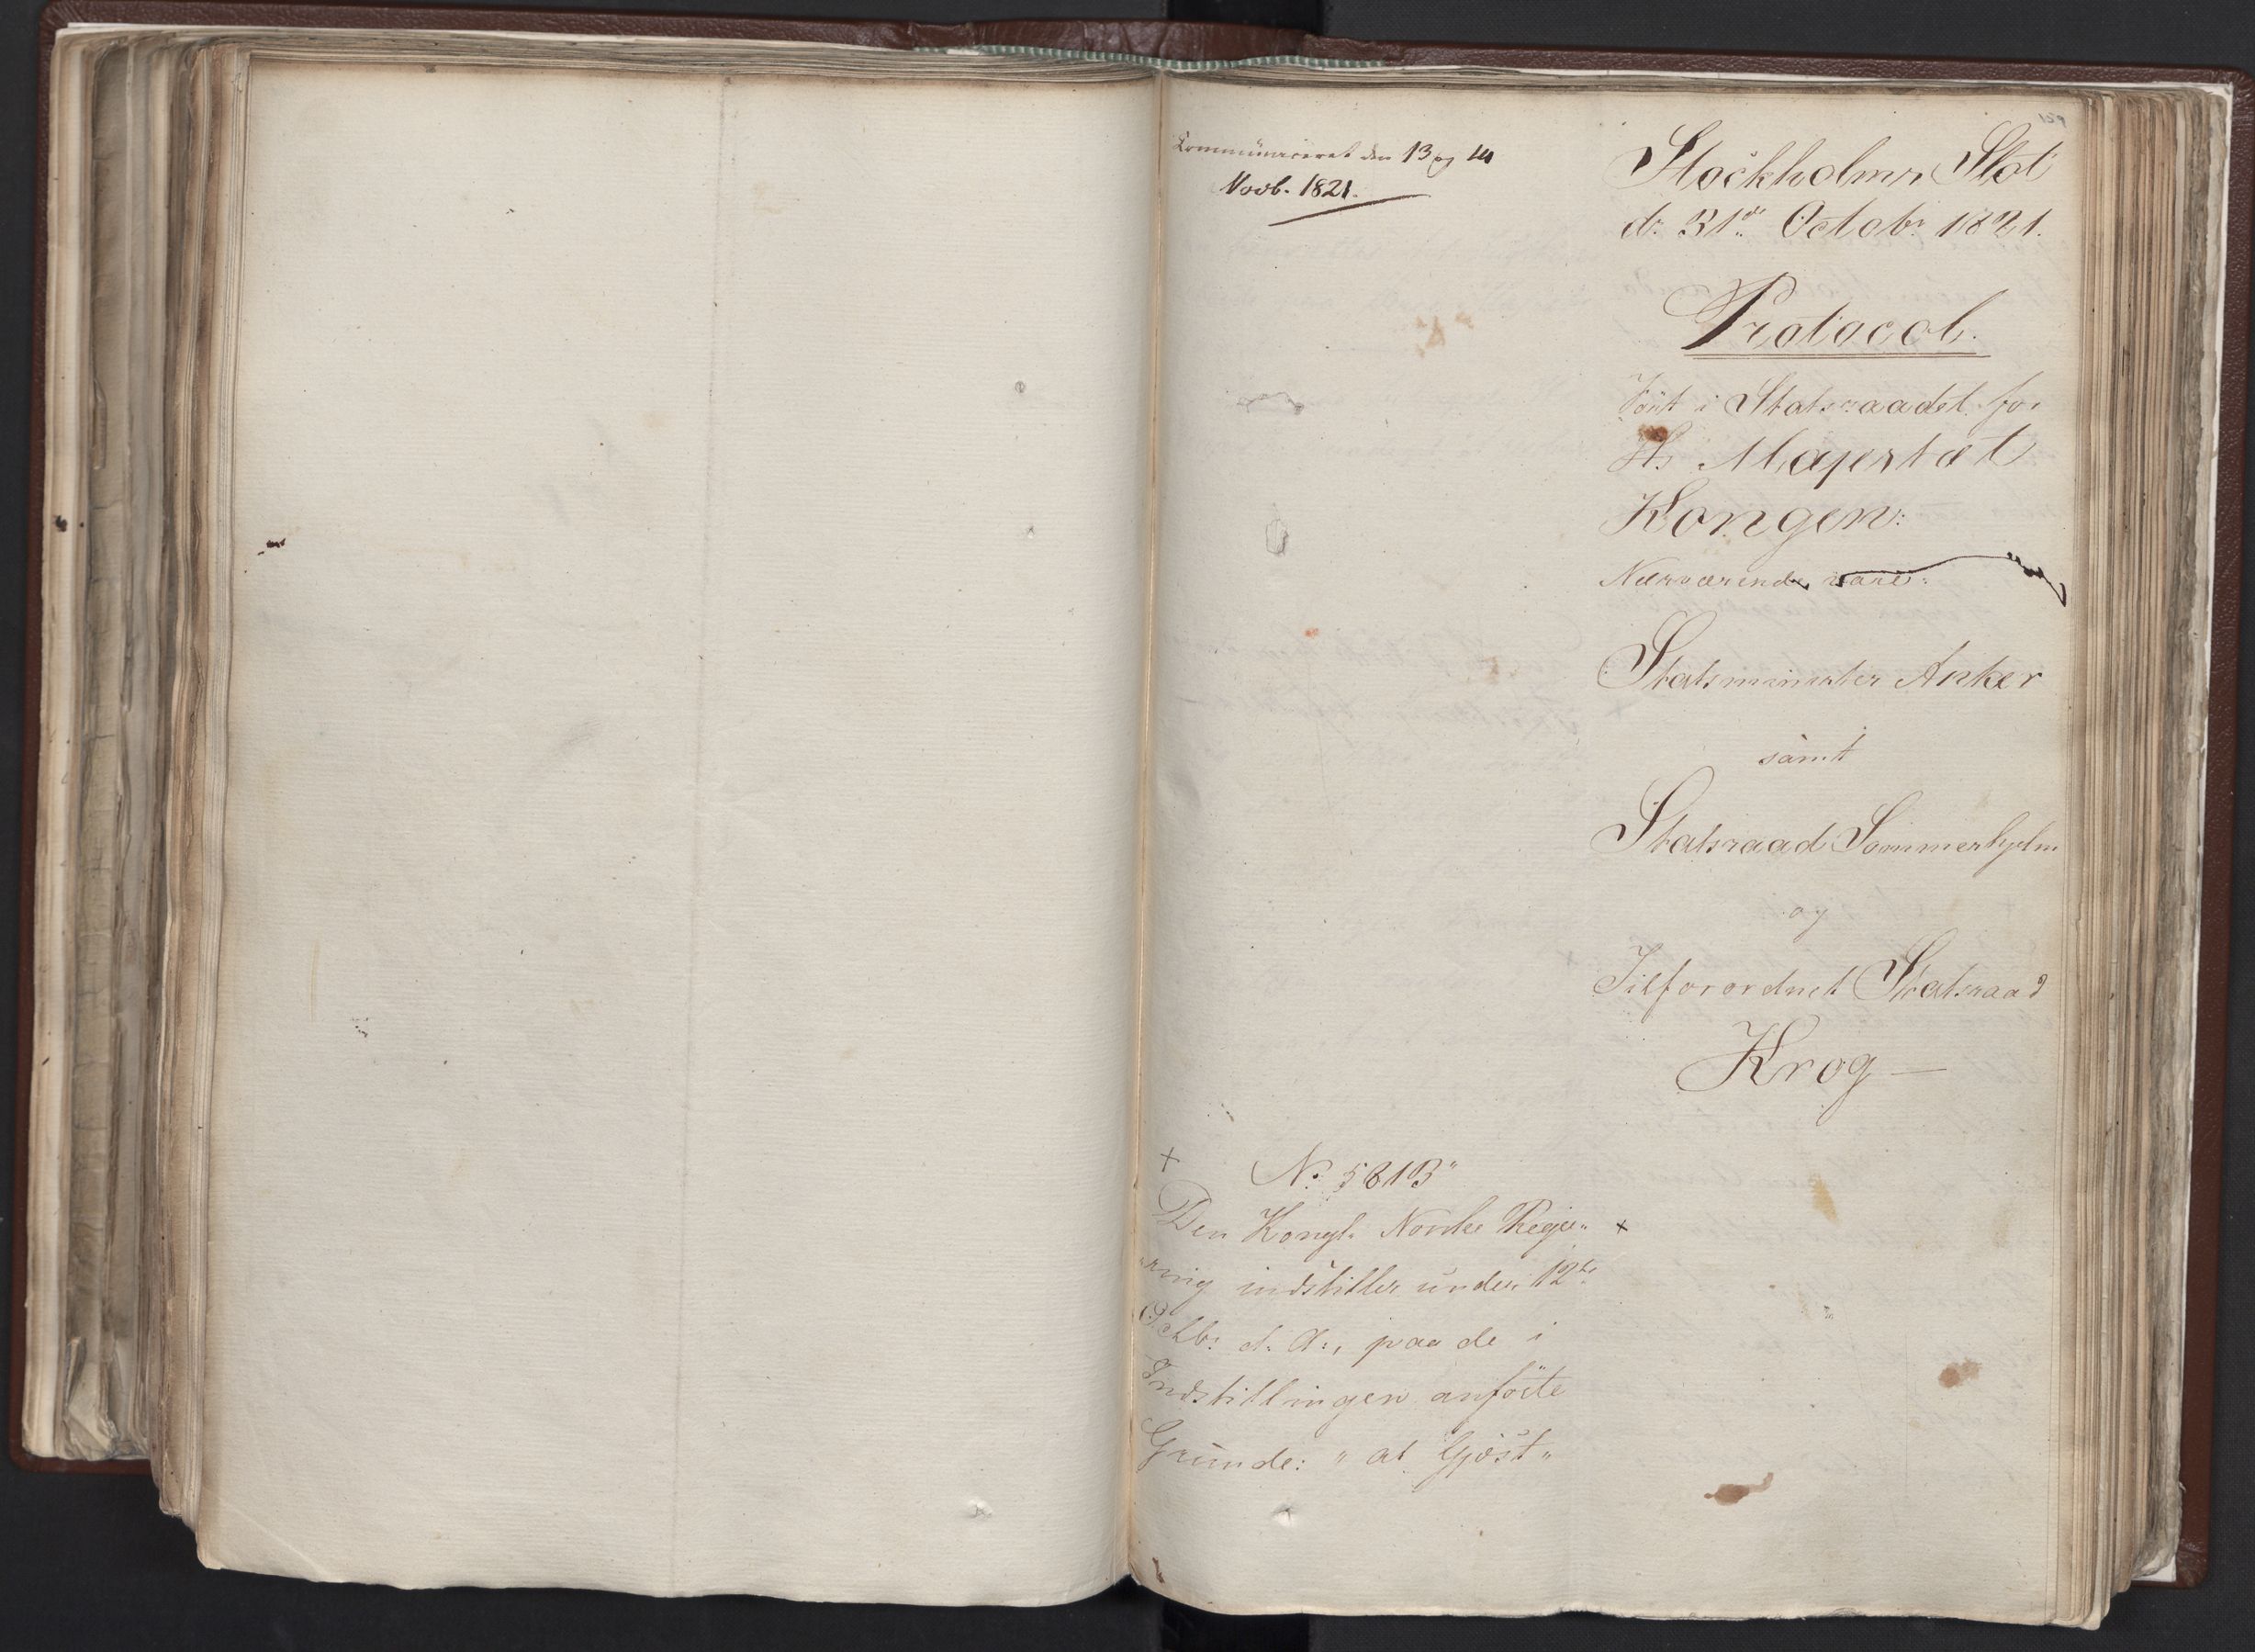 Communiceret den 13 og 14
Novb. 1821.
Stockholms Slot
d: 31te Octobr 1821.
Protocol.
Fört i Statsraadet for
Hs Majestæt
Kongen:
Nærværende vare:
Statsminister Anker
samt
Statsraad Sommerhjelm
og
Tilforordnet Statsraad
Krog —
+
No 5813"
Den Kongl. Norske Regje„ +
„ring indstiller under 12te
Octbr: d. A:, paa de i
Indstillingen anförte
Grunde: „ at Gjöst„